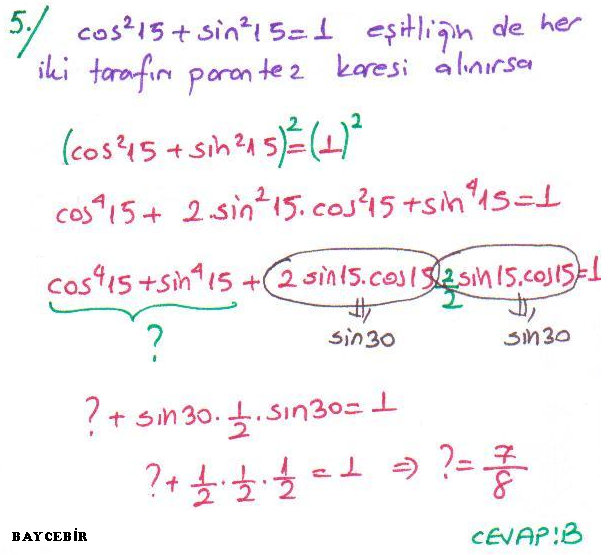 5./ cos²15 + sin²15 = 1 eşitliğin de her
iki tarafın parantez karesi alınırsa
(cos²15 + sin²15)² = (1)²
cos⁴15 + 2.sin²15.cos²15 + sin⁴15 = 1
cos⁴15 + sin⁴15 + 2 sin15.cos15 . 2/2 sin15.cos15 = 1
? sin30 sin30
? + sin30 . 1/2 . sin30 = 1
? + 1/2 . 1/2 . 1/2 = 1 ⇒ ? = 7/8
BAYCEBİR CEVAP:B